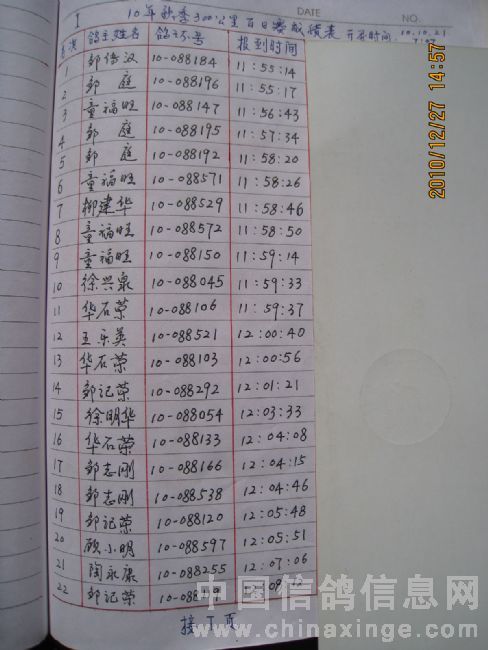 DATE
NO.
I
10年秋季300公里百日赛成绩表 开笼时间: 10.10.21
7:47
名次 鸽主姓名 鸽环号 报到时间
1 邹传汉 10-088184 11:55:14
2 邹庭 10-088196 11:55:17
3 童福旺 10-088147 11:56:43
4 邹庭 10-088195 11:57:34
5 邹庭 10-088192 11:58:20
6 童福旺 10-088571 11:58:26
7 柳建华 10-088529 11:58:46
8 童福旺 10-088572 11:58:50
9 童福旺 10-088150 11:59:14
10 徐兴泉 10-088045 11:59:33
11 华石荣 10-088106 11:59:37
12 王乐英 10-088521 12:00:40
13 华石荣 10-088103 12:00:56
14 邹记荣 10-088292 12:01:21
15 徐明华 10-088054 12:03:33
16 华石荣 10-088133 12:04:08
17 邹志刚 10-088166 12:04:15
18 邹志刚 10-088538 12:04:46
19 邹记荣 10-088120 12:05:48
20 顾小明 10-088597 12:05:51
21 陶永康 10-088255 12:07:06
22 邹记荣
接下页
2010/12/27 14:57
中国信鸽信息网
www.chinaxinge.com